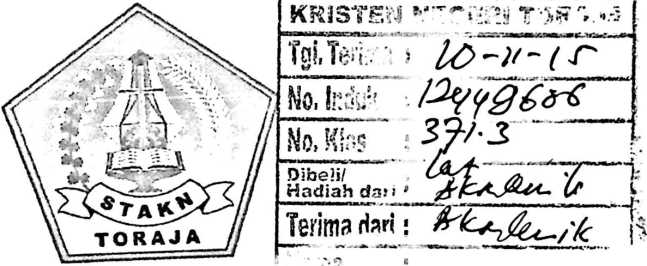 STAKN
TORAJA
KRISTEN NEGERI TORAJA
Tgl. Terima : 10-11-15
No. Induk : 12449686
No. Klas : 371.3
Dibeli/
Hadiah dari : Akademik
Terima dari : Akademik